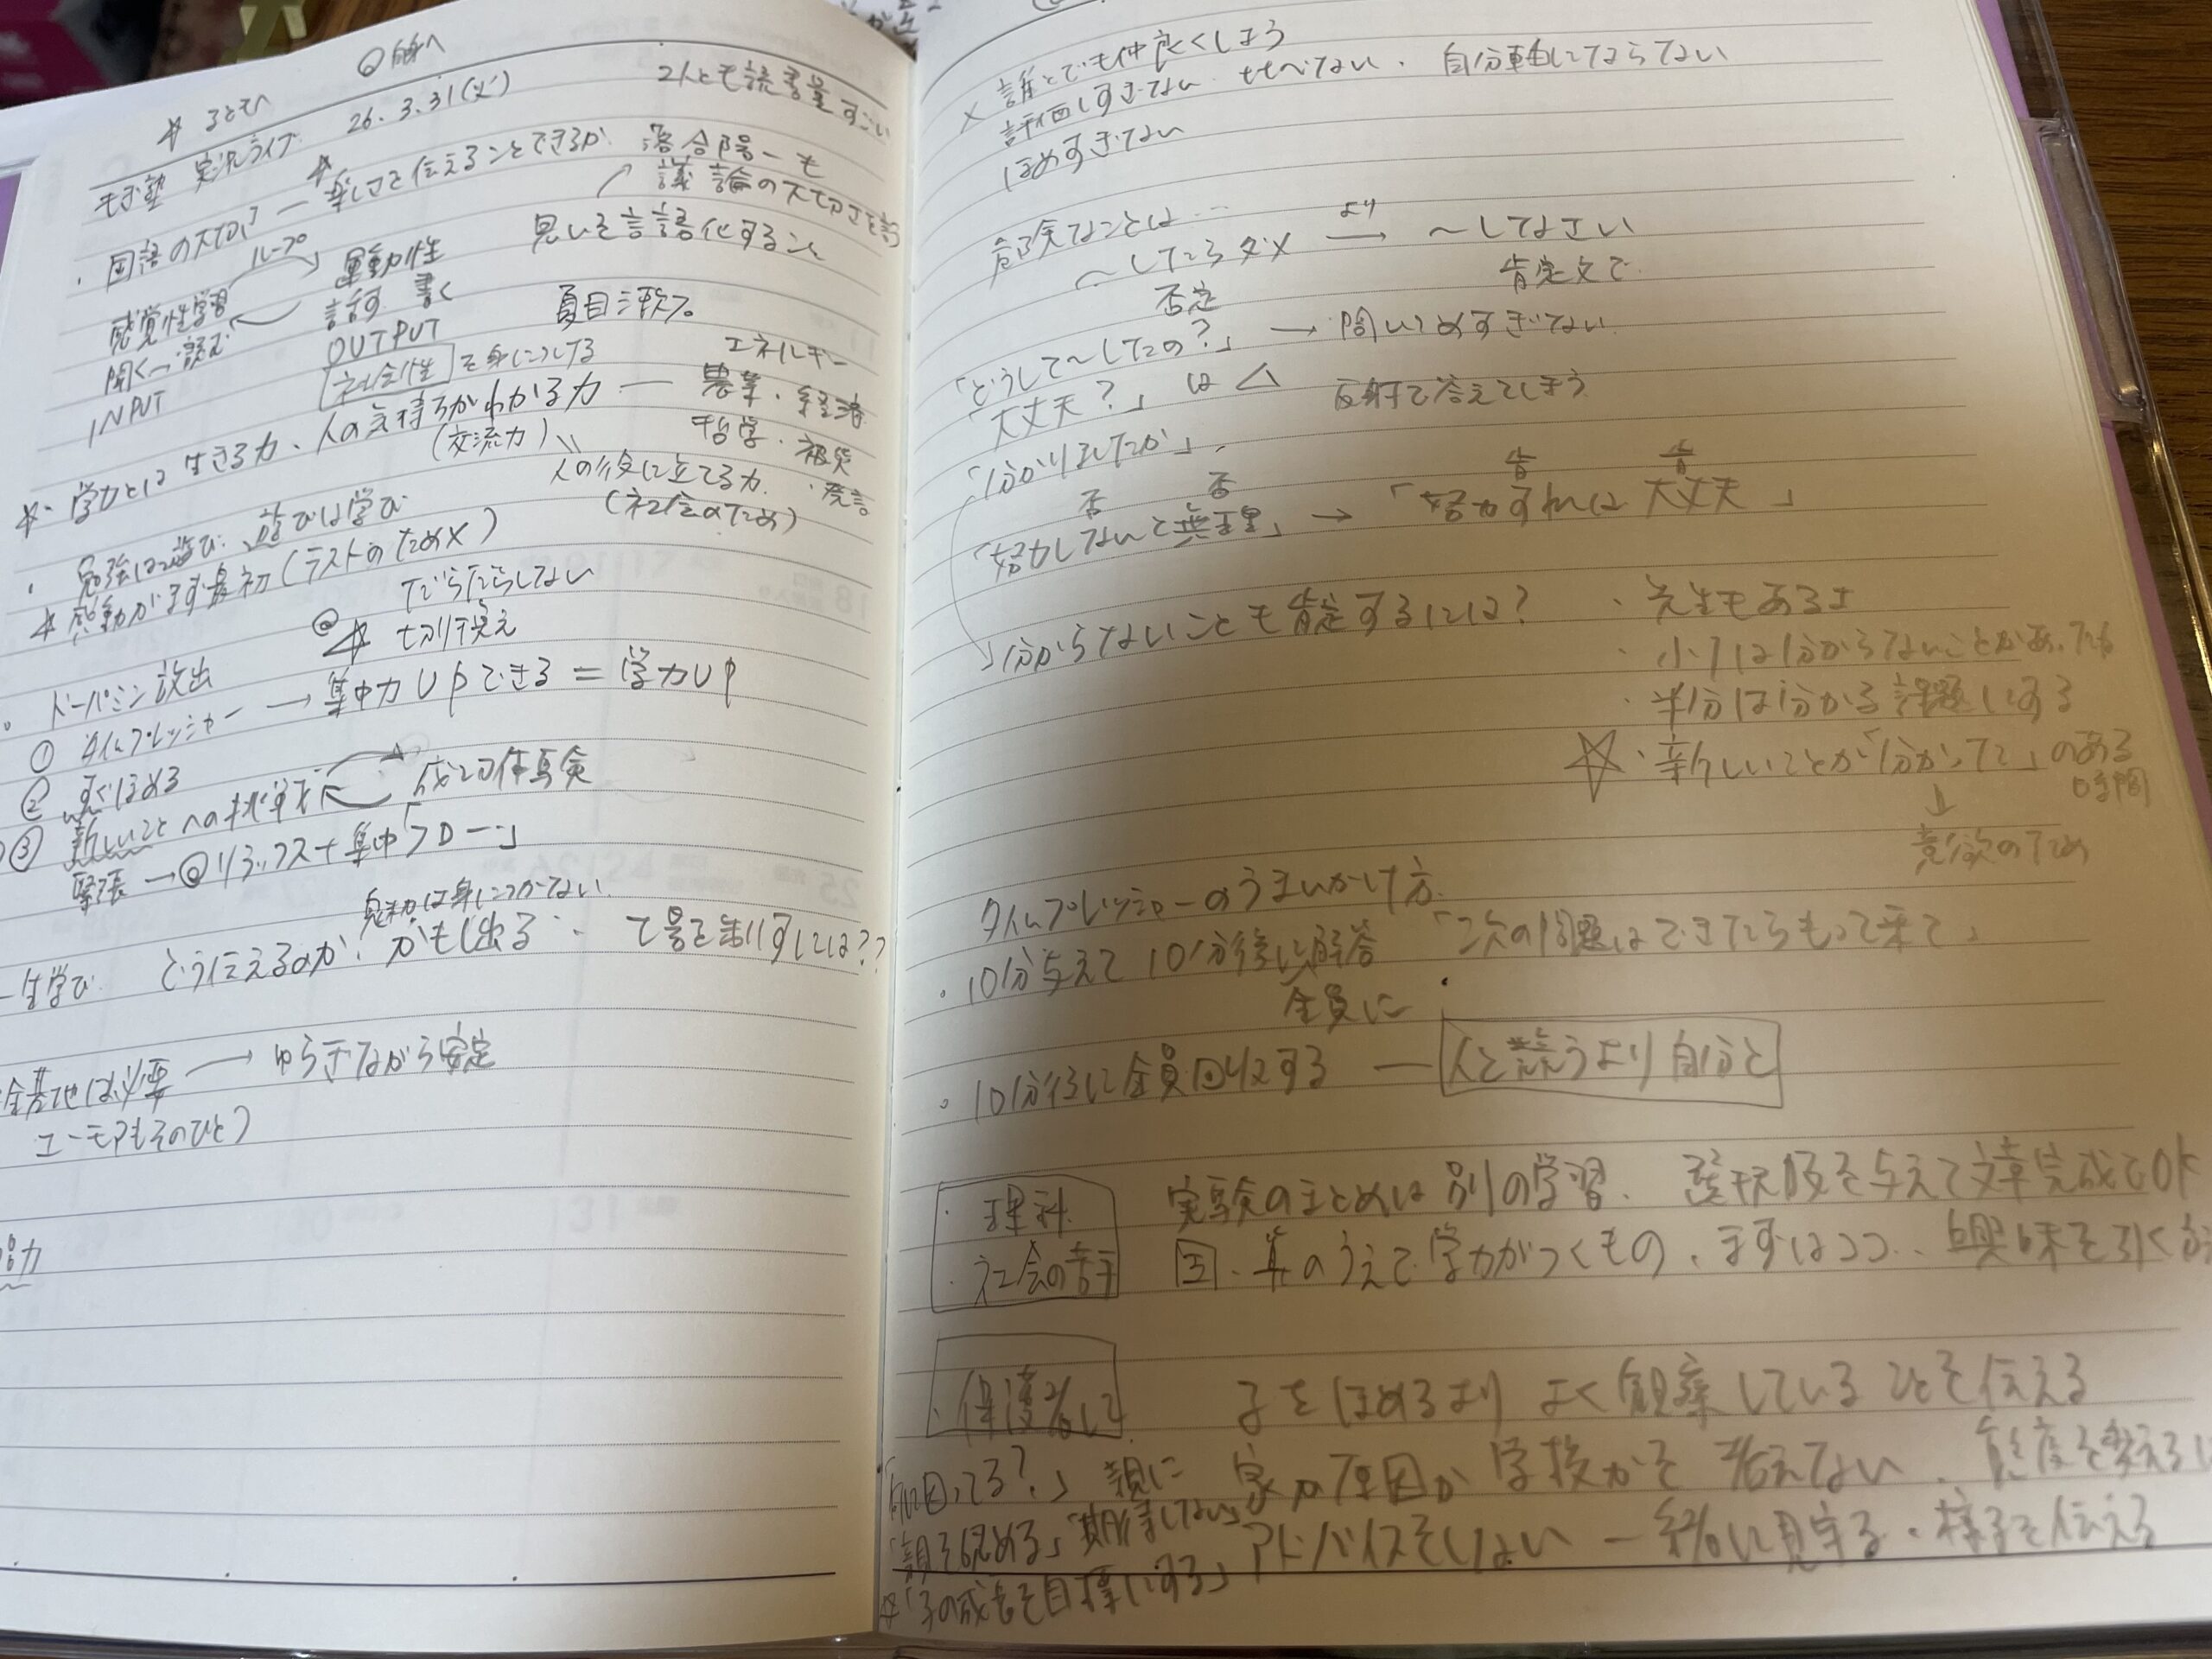 26.3.31(火)
2人とも読書量すごい
実況ライブ
国語の大切さ ― 楽しさを伝えることできるか
落合陽一も
議論の大切さを
思いを言語化すること
ループ
運動性
感覚性学習
話す 書く
聞く 読む
OUTPUT
INPUT
夏目漱石
社会性 を身につける
エネルギー
農業・経済
哲学・
学力とは 生きる力、人の気持ちがわかる力 ―
(交流力)
人の役に立てる力
・発言
(社会のため)
・勉強は遊び、遊びは学び
☆感動がまず最初(テストのため×)
だらだらしない
切り換え
。ドーパミン放出
① タイムプレッシャー → 集中力UPできる = 学力UP
② すぐほめる
③ 新しいことへの挑戦 成功体験
緊張 → ◎リラックス+集中「フロー」
は身につかない
どう伝えるのか
基地は必要 → ゆらぎながら安定
ユーモアもそのひとつ
× 誰とでも仲良くしよう
評価しすぎない 比べない、自分軸にならない
ほめすぎない
より
〜したらダメ → 〜しなさい
否定
肯定文で
「どうして〜したの?」 → 問いつめすぎない
「大丈夫?」は△
反射で答えてしまう
「分かりましたか」
否 否 肯 肯
「努力しないと無理」 → 「努力すれば大丈夫」
分からないことも肯定するには?
・先生もあるよ
・半分は分かる課題にする
☆・新しいことが「分かった」のある
時間
↓
意欲のため
タイムプレッシャーのうまいかけ方
。10分与えて10分後に解答 「次の問題はできたらもって来て」
全員に
。10分後に全員回収する ― 人と競うより自分と
・理科
・社会の苦手
実験のまとめは別の学習、選択肢を与えて文章完成でOK
国・算のうえで学力がつくもの、まずは 興味を引く
・保護者に
子をほめるより よく観察していることを伝える
「何困ってる?」親に
家が原因か学校かを考えない、態度を変える
「期待しない」
アドバイスをしない ― 緒に見守る・様子を伝える
☆「子の成長を目標にする」